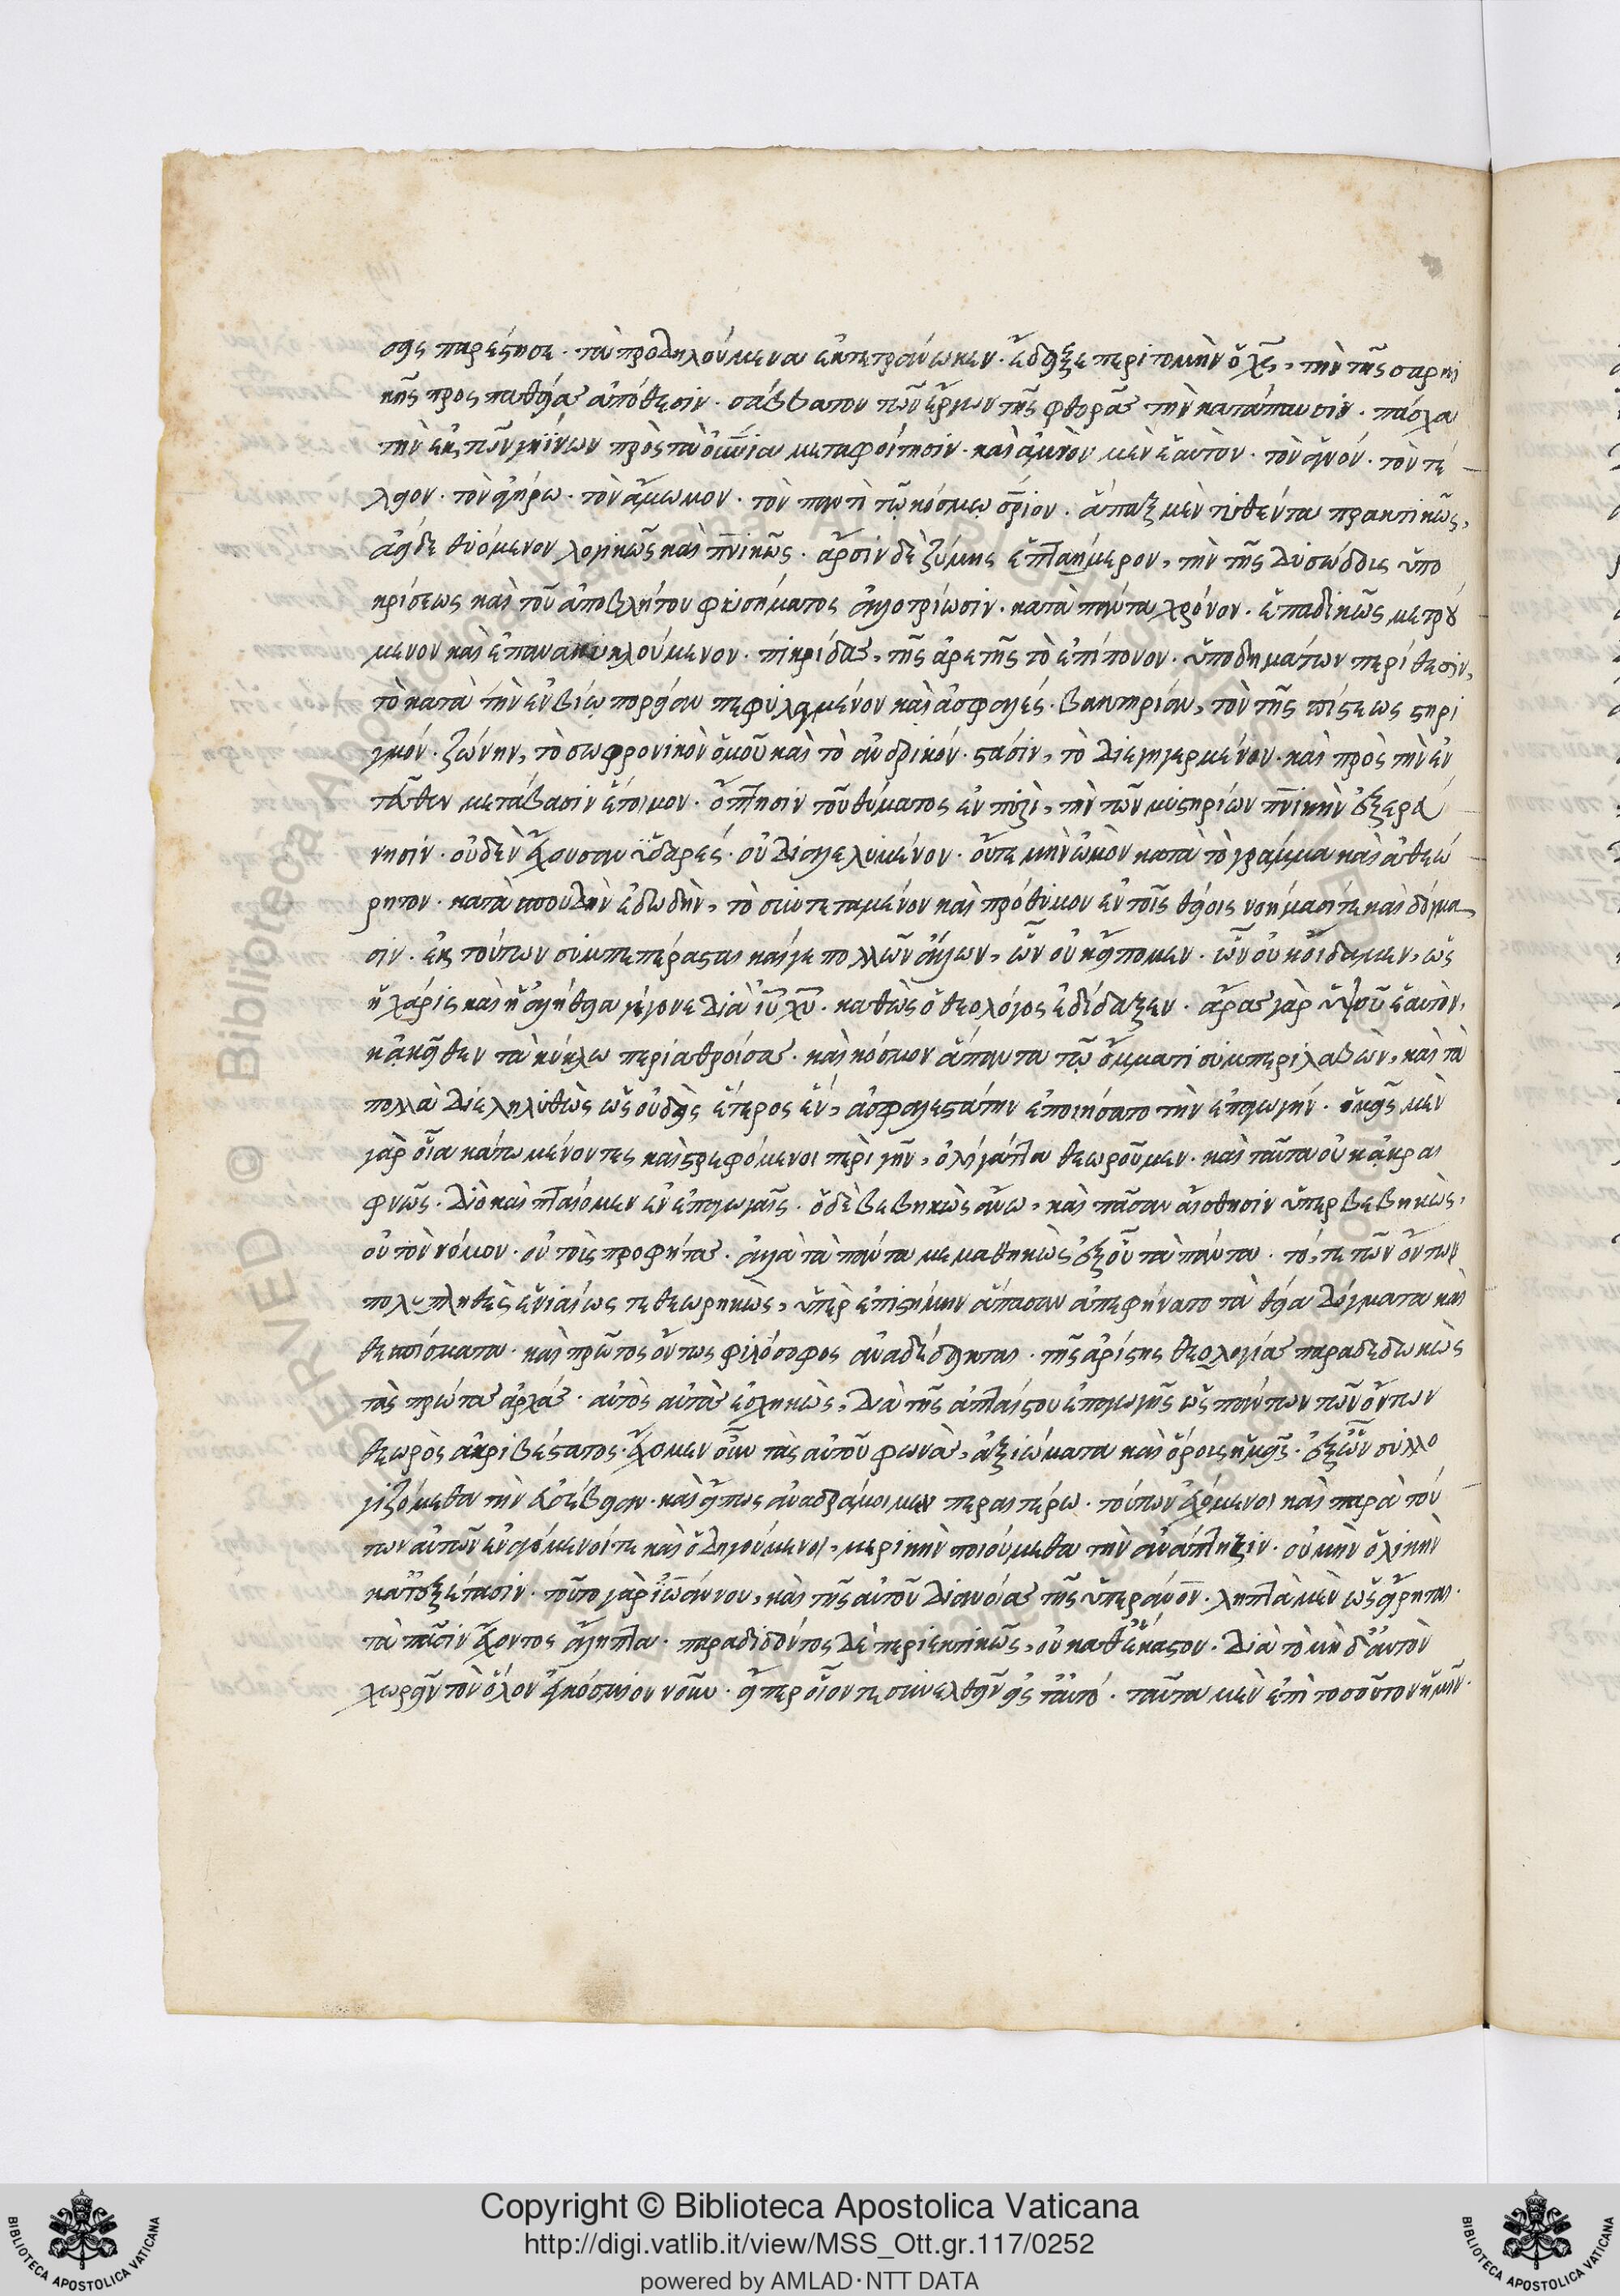 σας παρέστησε. τὰ προδηλούμενα ἐκπεπράωκεν. ἔδειξε περιτομὴν ὁ χς, τὴν τῆς σαρκι
κῆς προσπαθείας ἀπόθεσιν. σάββατον τῶν ἔργων τῆς φθορᾶς τὴν κατάπαυσιν. πάσχα
τὴν ἐκ τῶν γηΐνων πρὸς τὰ οὐνια μεταφοίτησιν. καὶ ἀμνὸν μὲν ἑαυτὸν. τὸν ἁγνόν. τὸν τέ
λειον. τὸν ἀκέραιον. τὸν ἄμωμον. τὸν παντὶ τῷ κόσμῳ σριον. ἅπαξ μὲν τυθέντα πρακτικῶς,
ἀεὶ δὲ θυόμενον λογικῶς καὶ πνικῶς. ἄρσιν δὲ ζύμης ἑπταήμερον, τὴν τῆς δυσώδους ὑπο
κρίσεως καὶ τοῦ ἀποβλήτου φυσήματος ἀλλοτρίωσιν. κατὰ πάντα χρόνον. ἑπταδικῶς μετρού
μενον καὶ ἐπανακυκλούμενον. πικρίδας, τῆς ἀρετῆς τὸ ἐπίπονον. ὑποδημάτων περίθεσιν,
τὸ κατὰ τὴν ἐν βίῳ πορείαν πεφυλαγμένον καὶ ἀσφαλές. βακτηρίαν, τὸν τῆς πίστεως στηρι
γμόν. ζώνην, τὸ σωφρονικὸν ὁμοῦ καὶ τὸ ἀνδρικόν. στάσιν, τὸ διεγηγερμένον. καὶ πρὸς τὴν ἐν
τεῦθεν μετάβασιν ἕτοιμον. ὄπτησιν τοῦ θύματος ἐν πυρὶ, τὴν τῶν μυστηρίων πνικὴν ἐξερεύ
νησιν. οὐδὲν ἔχουσαν ὑδαρές. οὐ διαλελυμένον. οὔτε μὴν ὠμὸν κατὰ τὸ γράμμα καὶ ἀθεώ
ρητον. κατὰ σπουδὴν ἐδωδὴν, τὸ συντεταμένον καὶ πρόθυμον ἐν τοῖς θείοις νοήμασί τε καὶ δόγμα
σιν. ἐκ τούτων συμπεπέρασται καί γε πολλῶν ἄλλων, ὧν οὐκ εἴπομεν. ὧν οὐκ οἴδαμεν, ὡς
ἡ χάρις καὶ ἡ ἀλήθεια γέγονε διὰ ιυ χυ. καθὼς ὁ θεολόγος ἐδίδαξεν. ἄρας γὰρ ὑψοῦ ἑαυτὸν,
κἀκεῖθεν τὰ κύκλω περιαθροίσας. καὶ κόσμον ἅπαντα τῷ ὄμματι συμπεριλαβὼν, καὶ τὰ
πολλὰ διεληλυθὼς ὡς οὐδεὶς ἕτερος ἕν, ἀσφαλεστάτην ἐποιήσατο τὴν ἐπαγωγήν. ἡμεῖς μὲν
γὰρ οἷα κάτω μένοντες καὶ στρεφόμενοι περὶ γῆν, ὀλίγ' ἄττα θεωροῦμεν. καὶ ταῦτα οὐκ ἀκραι
φνῶς. διὸ καὶ πταίομεν ἐν ἐπαγωγαῖς. ὁ δὲ βεβηκὼς ἄνω, καὶ πᾶσαν αἴσθησιν ὑπερβεβηκὼς,
οὐ τὸν νόμον. οὐ τοὺς προφήτας. ἀλλὰ τὰ πάντα μεμαθηκὼς ἐξ οὗ τὰ πάντα. τό, τε τῶν ὄντων
πολυπληθὲς ἑνιαίως τεθεωρηκὼς, ὑπὲρ ἐπιστήμην ἅπασαν ἀπεφήνατο τὰ θεῖα δόγματα καὶ
θεσπίσματα. καὶ πρῶτος ὄντως φιλόσοφος ἀναδέδεικται. τῆς ἀρίστης θεολογίας παραδεδωκὼς
τὰς πρώτας ἀρχάς. αὐτὸς αὐτὰς ἐσχηκὼς, διὰ τῆς ἀπταίστου ἐπαγωγῆς ὡς πάντων τῶν ὄντων
θεωρὸς ἀκριβέστατος. ἔχομεν οὖν τὰς αὐτοῦ φωνὰς, ἀξιώματα καὶ ὅρους ἡμεῖς. ἐξ ὧν συλλο
γιζόμεθα τὴν εὐσέβειαν. καὶ εἴ πως ἀναδράμοιμεν περαιτέρω. τούτων ἐχόμενοι καὶ παρὰ τού
των αὐτῶν ἐναγόμενοί τε καὶ ὁδηγούμενοι, μερικὴν ποιούμεθα τὴν ἀνάπτυξιν. οὐ μὴν ὁλικὴν
κατεξέτασιν. τοῦτο γὰρ ἰωάννου, καὶ τῆς αὐτοῦ διανοίας τῆς ὑπερανου. ληπτὰ μὲν ὡς εἴρηται.
τὰ πᾶσιν ἔχοντος ἄληπτα. παραδιδόντος δὲ περιεκτικῶς, οὐ καθ' ἕκαστον. διὰ τὸ μὴ δ' αὐτὸν
χωρεῖν τὸν ὅλον ἐγκόσμιον νοῦν. εἴπερ οἷόν τε συνελθεῖν εἰς ταυτό. ταῦτα μὲν ἐπὶ τοσοῦτον ἡμῖν.
Copyright © Biblioteca Apostolica Vaticana
http://digi.vatlib.it/view/MSS_Ott.gr.117/0252
powered by AMLAD·NTT DATA